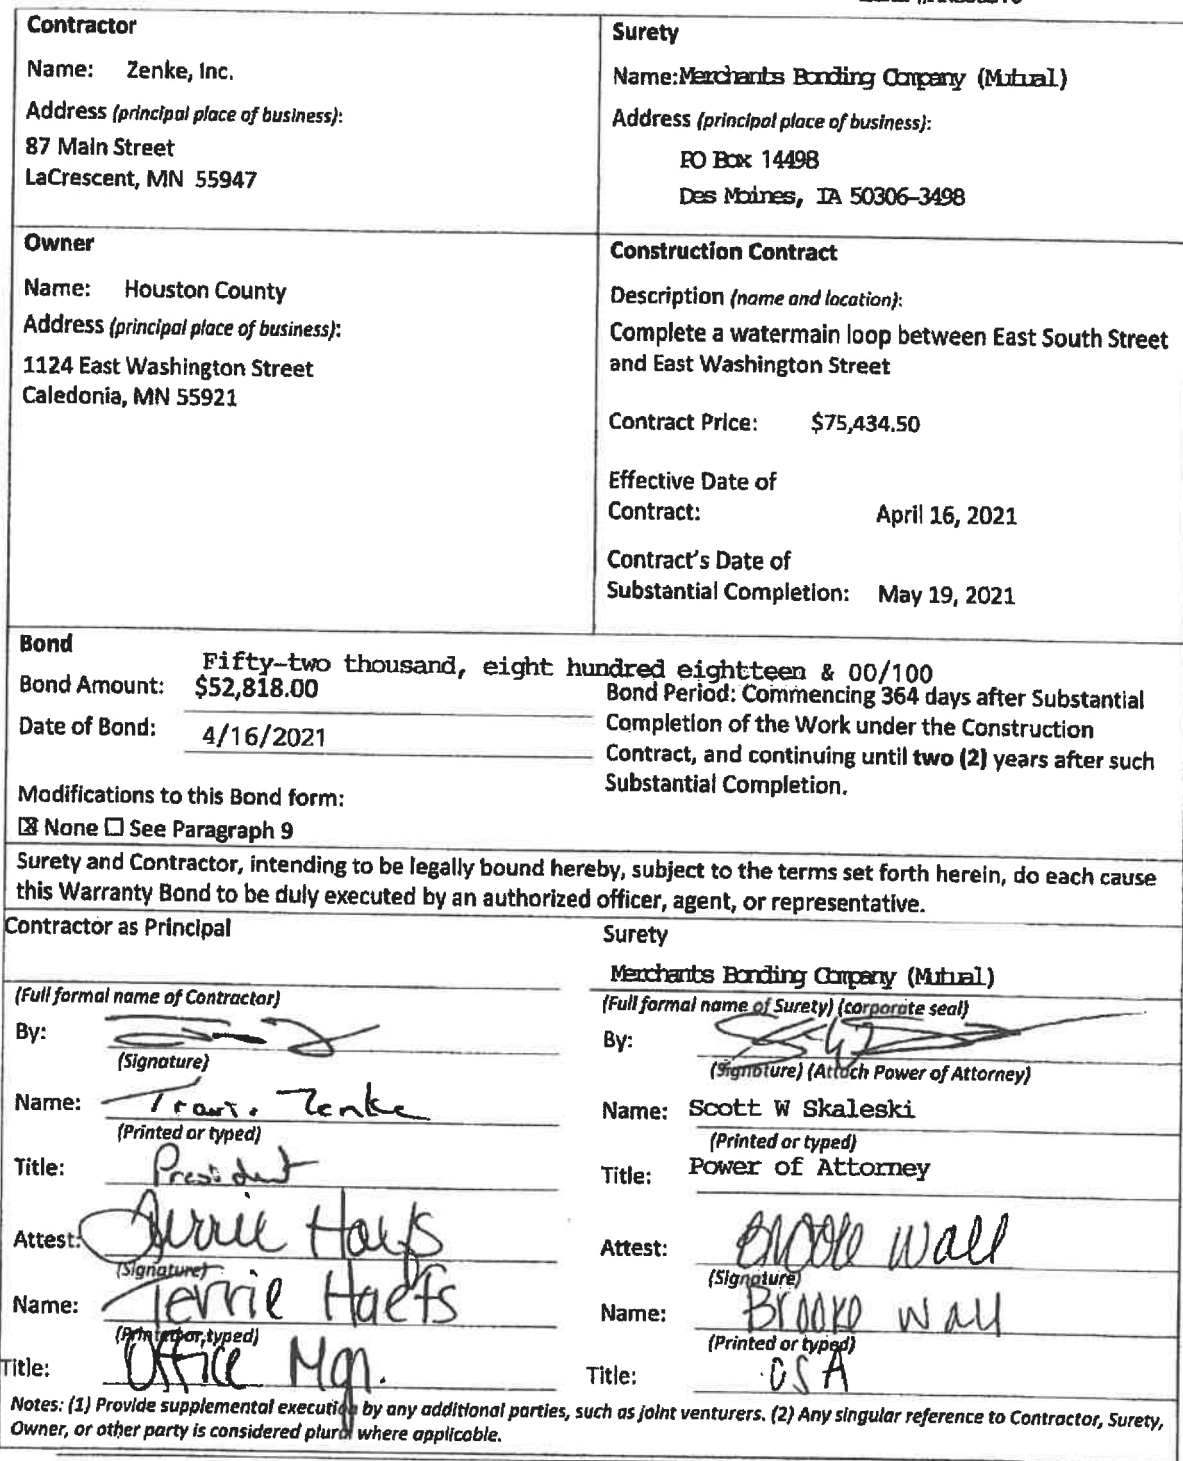 Contractor
Name: Zenke, Inc.
Address (principal place of business):
87 Main Street
LaCrescent, MN 55947
Surety
Name:Merchants Bonding Company (Mutual)
Address (principal place of business):
PO Box 14498
Des Moines, IA 50306-3498
Owner
Name: Houston County
Address (principal place of business):
1124 East Washington Street
Caledonia, MN 55921
Construction Contract
Description (name and location):
Complete a watermain loop between East South Street
and East Washington Street
Contract Price: $75,434.50
Effective Date of
Contract: April 16, 2021
Contract's Date of
Substantial Completion: May 19, 2021
Bond
Fifty-two thousand, eight hundred eightteen & 00/100
Bond Amount: $52,818.00
Date of Bond: 4/16/2021
Bond Period: Commencing 364 days after Substantial
Completion of the Work under the Construction
Contract, and continuing until two (2) years after such
Substantial Completion.
Modifications to this Bond form:
☒ None ☐ See Paragraph 9
Surety and Contractor, intending to be legally bound hereby, subject to the terms set forth herein, do each cause
this Warranty Bond to be duly executed by an authorized officer, agent, or representative.
Contractor as Principal
(Full formal name of Contractor)
By:
(Signature)
Name: Travis Zenke
(Printed or typed)
Title: President
Attest: Terrie Haefs
(Signature)
Name: Terrie Haefs
(Printed or typed)
Title: Office Mgr.
Surety
Merchants Bonding Company (Mutual)
(Full formal name of Surety) (corporate seal)
By:
(Signature) (Attach Power of Attorney)
Name: Scott W Skaleski
(Printed or typed)
Title: Power of Attorney
Attest: Brooke Wall
(Signature)
Name: Brooke Wall
(Printed or typed)
Title: CSA
Notes: (1) Provide supplemental execution by any additional parties, such as joint venturers. (2) Any singular reference to Contractor, Surety,
Owner, or other party is considered plural where applicable.